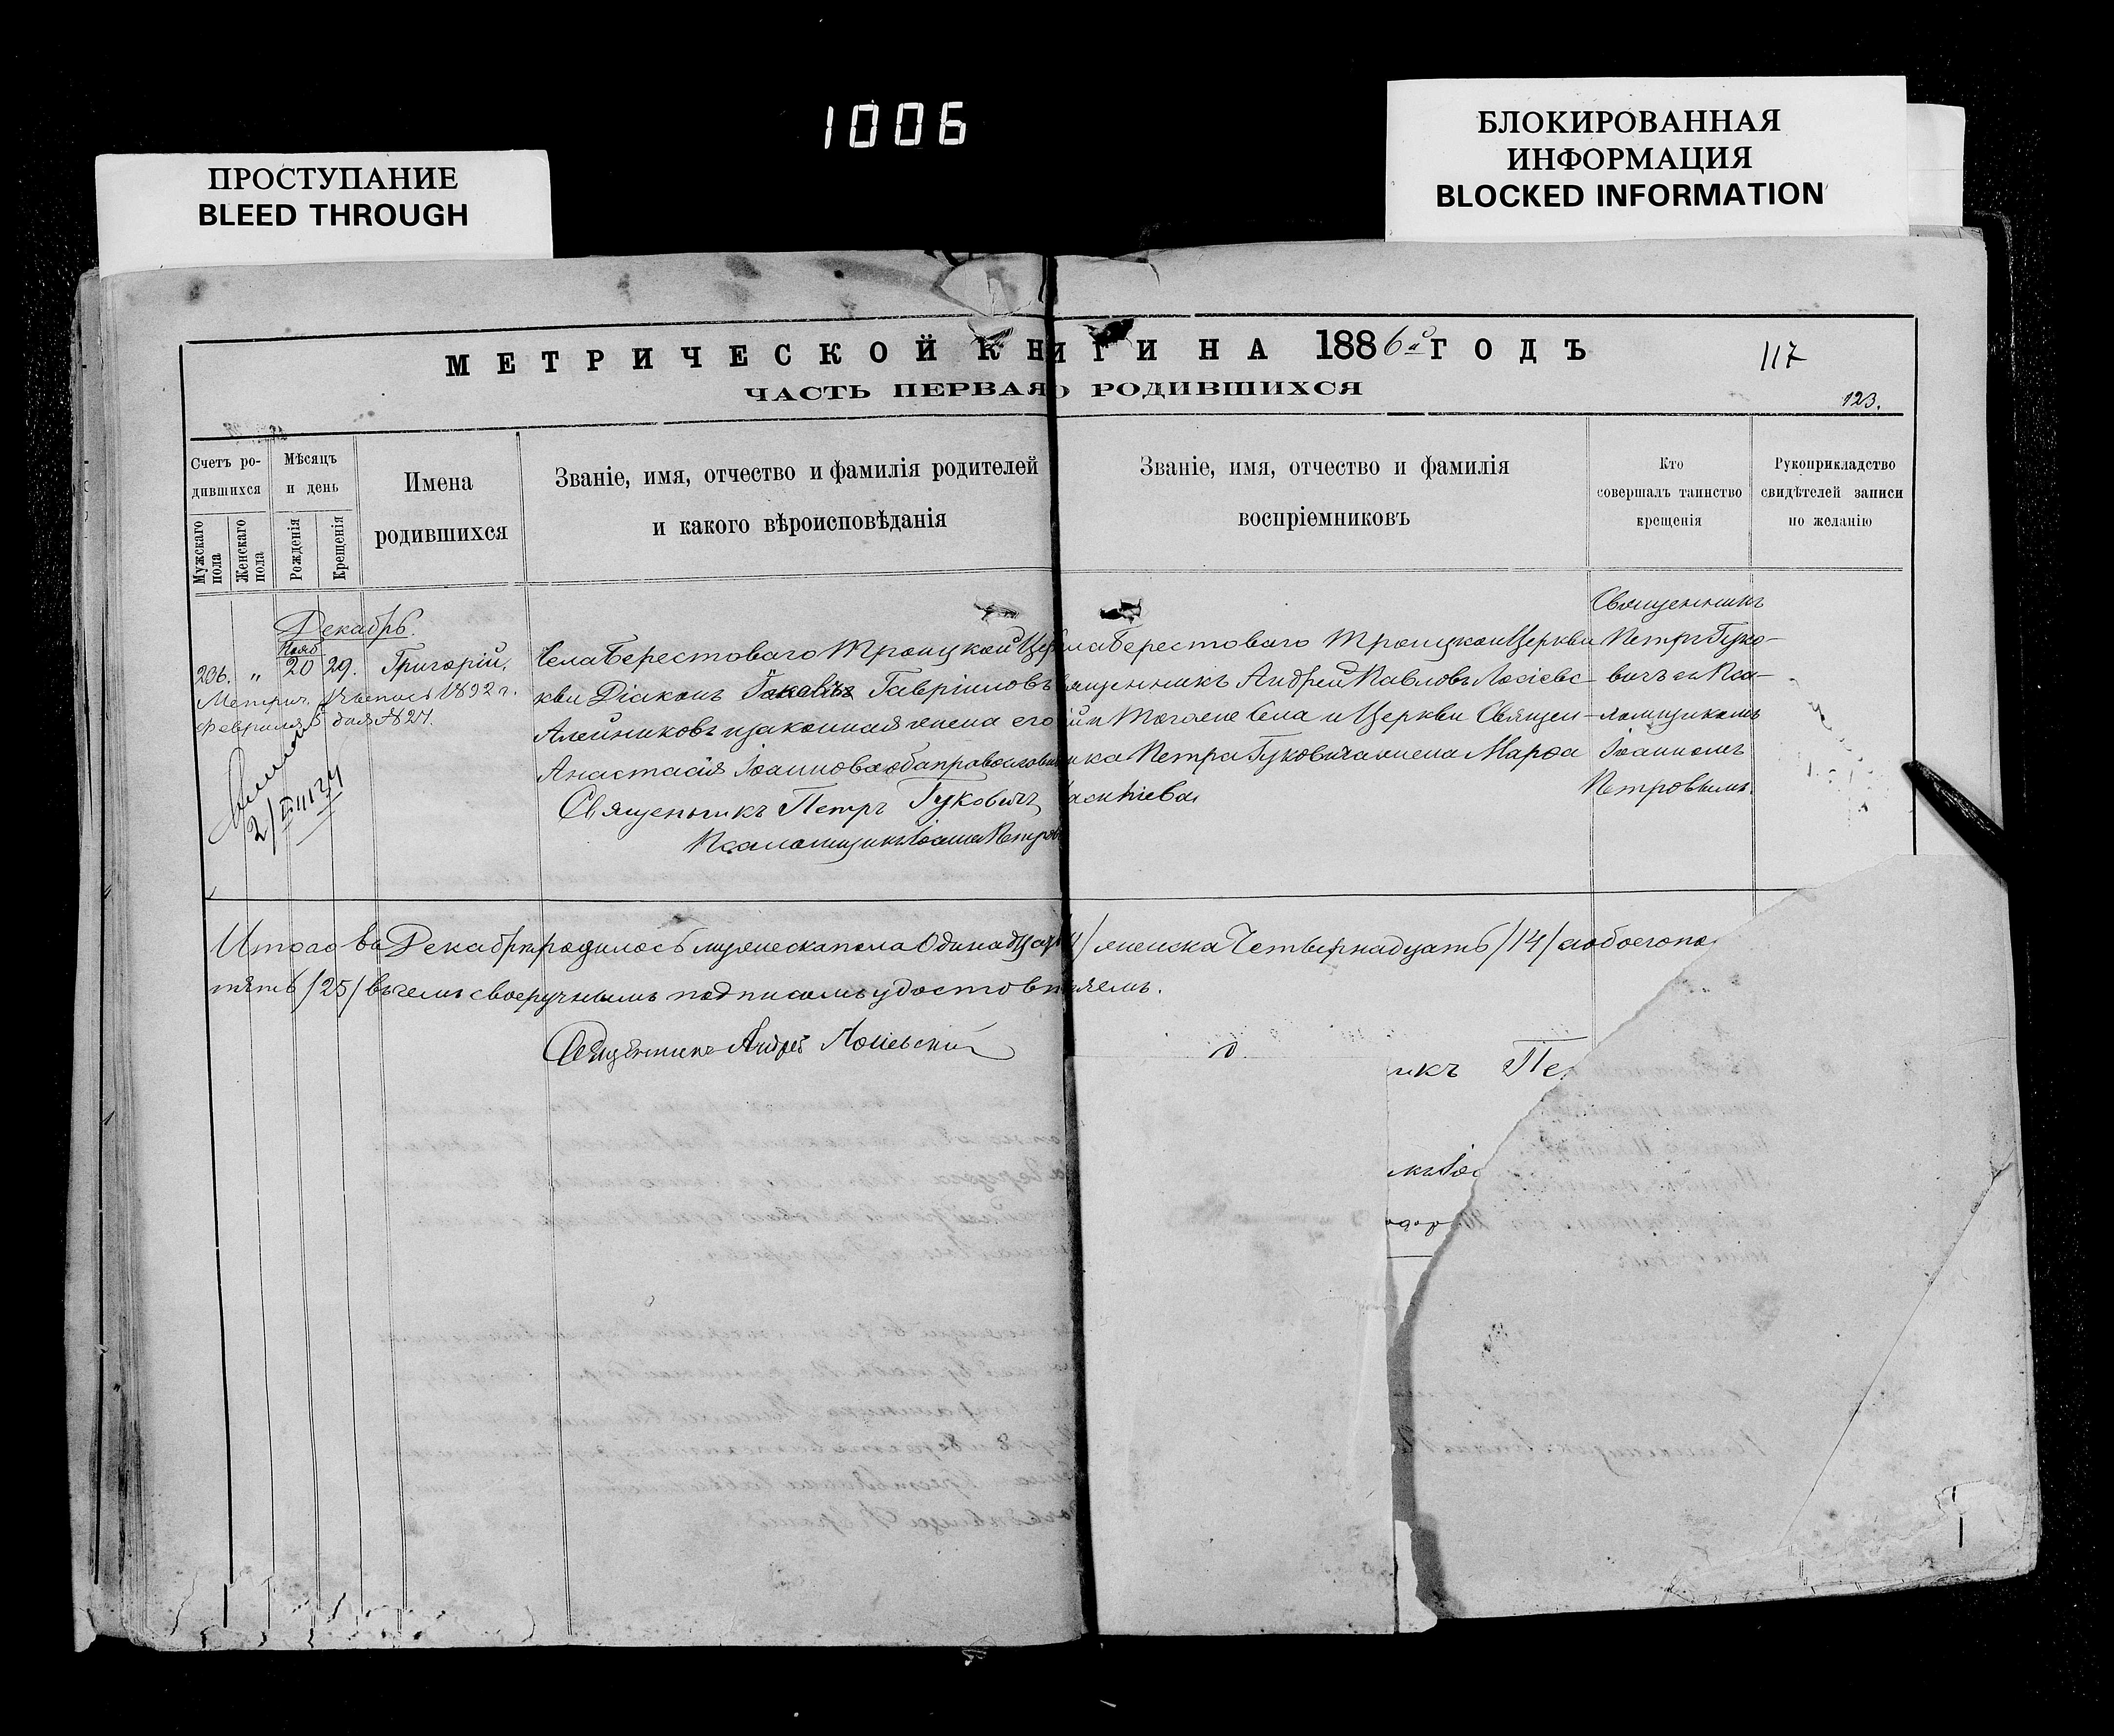 1006
ПРОСТУПАНИЕ
BLEED THROUGH
БЛОКИРОВАННАЯ
ИНФОРМАЦИЯ
BLOCKED INFORMATION
МЕТРИЧЕСКОЙ КНИГИ НА 1886й ГОДЪ
117
ЧАСТЬ ПЕРВАЯ О РОДИВШИХСЯ
123.
Счетъ ро-
дившихся
Мужскаго пола
Женскаго пола
Мѣсяцъ
и день
Рожденія
Крещенія
Имена
родившихся
Званіе, имя, отчество и фамилія родителей
и какого вѣроисповѣданія
Званіе, имя, отчество и фамилія
воспріемниковъ
Кто
совершалъ таинство
крещенія
Рукоприкладство
свидѣтелей записи
по желанію
Декабрь.
Нояб
206. " 20 29. Григорій.
Метрич. 1892 г.
Февраля 5 дня №27.
Села Берестоваго Троицкой Цер
кви Діаконъ Іаковъ Гавріиловъ
Алейниковъ и законная жена его
Анастасія Іоаннова оба православн
Священникъ Петръ Гуковичъ
Псаломщикъ Іоаннъ Петров
ла Берестоваго Троицкой Церкви
ященникъ Андрей Павловъ Лосіевс-
ій и Тогоже Села и Церкви Священ-
ника Петра Гуковича жена Марѳа
асиліева
Священникъ
Петръ Гуко-
вичъ съ Пса-
ломщикомъ
Іоанномъ
Петровымъ.
Итого въ Декабрѣ родилось мужеска пола Одинадцать /11/ женска Четырнадцать /14/ а обоего по
пять /25/ въ чемъ своеручнымъ подписомъ удостовѣряемъ.
Священникъ Андрей Лосіевскій
икъ Пе
къ Іо